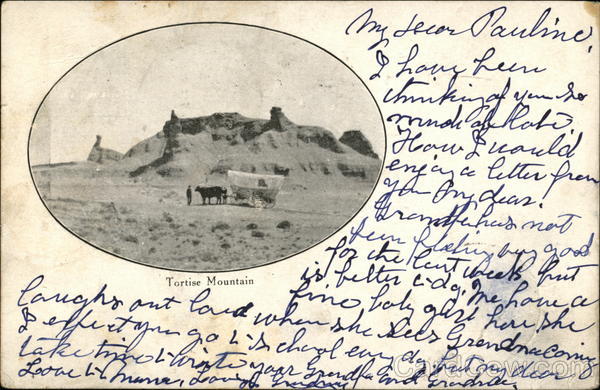 My dear Pauline,
I have been
thinking of you so
much of late.
How I would
enjoy a letter from
you my dear.
Grandpa has not
been feeling very good
for the last week but
is better to-day. We have a
fine baby girl here, she
laughs out loud when she sees Grandma coming
I expect you go to school every day but my dear
take time to write your Grandpa and Grandma
Love to Mama, Love
Tortise Mountain
CardCow.com